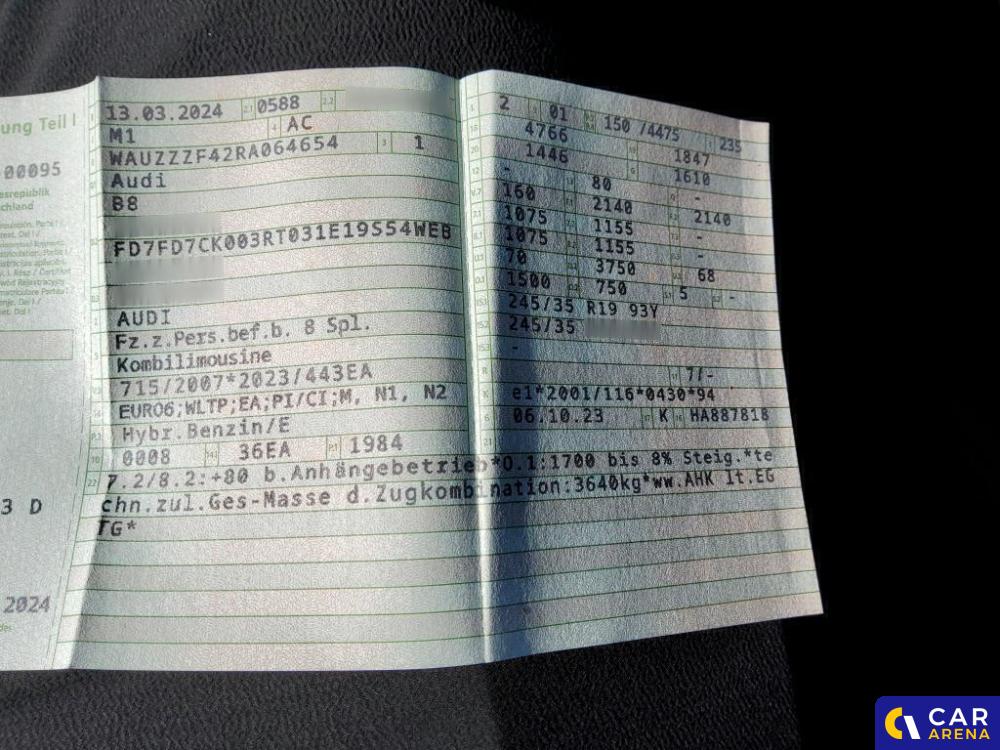 ung Teil I
00095
esrepublik
chland
3 D
2024
13.03.2024 2.1 0588 2.2
M1 AC
WAUZZZF42RA064654 3 1
Audi
B8
FD7FD7CK003RT031E19S54WEB
AUDI
Fz.z.Pers.bef.b. 8 Spl.
Kombilimousine
715/2007*2023/443EA
EURO6;WLTP;EA;PI/CI;M, N1, N2
Hybr.Benzin/E
0008 36EA 1984
2 01 150 /4475 235
4766 1847
1446 1610
- 80 -
160 2140 2140
1075 1155 -
1075 1155 -
70 3750 68
1500 750 5 -
245/35 R19 93Y
245/35
-
7/-
e1*2001/116*0430*94
06.10.23 K HA887818
22 7.2/8.2:+80 b.Anhängebetrieb*O.1:1700 bis 8% Steig.*te
chn.zul.Ges-Masse d.Zugkombination:3640kg*ww.AHK lt.EG
TG*
CAR
ARENA